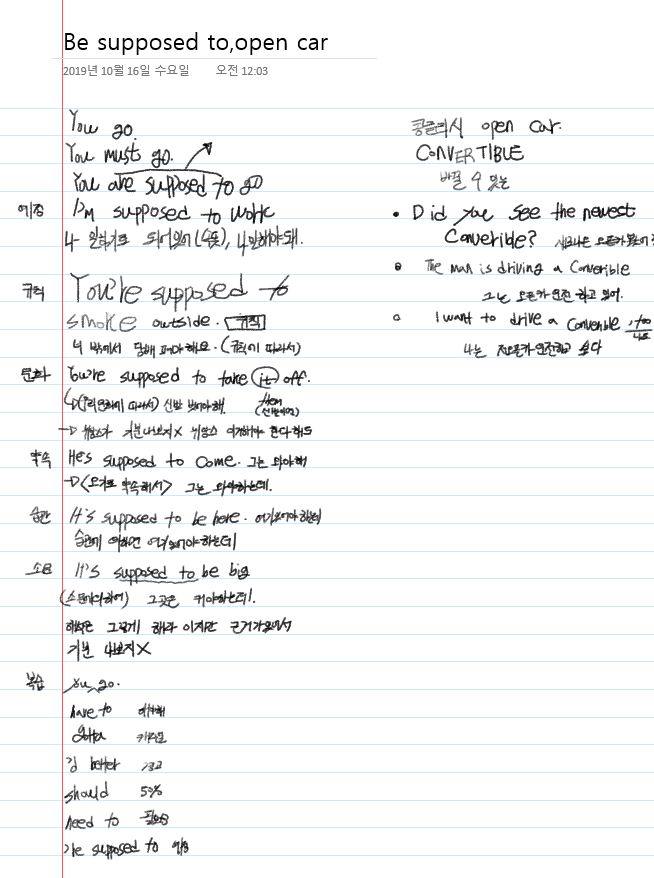 Be supposed to,open car
2019년 10월 16일 수요일 오전 12:03
You go.
You must go.
You are supposed to go
예정 I'm supposed to work
나 일하기로 되어있어
규칙 You're supposed to
smoke outside. 규칙
너 밖에서 담배 펴야해요. (규칙에 따라서)
문화 You're supposed to take it off.
them
신발 벗어야해.
기분나쁘지X
약속 He's supposed to come. 그는 와야해
→ 약속해서> 그는 와야하는데.
습관 It's supposed to be here. 여기있어야하는데
습관에 의하면 여기있어야하는데
소문 It's supposed to be big
그곳은 커야하는데.
해석은 그렇게 해라 이지만
기분 나쁘지X
복습 You go.
have to
gotta
better 경고
should 50%
need to 필요
supposed to 예정
콩글리시 open car.
CONVERTIBLE
바꿀 수 있는
• Did you see the newest
Converible?
• The man is driving a Converible
그는 오픈카 운전 하고 있어.
I want to drive a too
나는 싶다